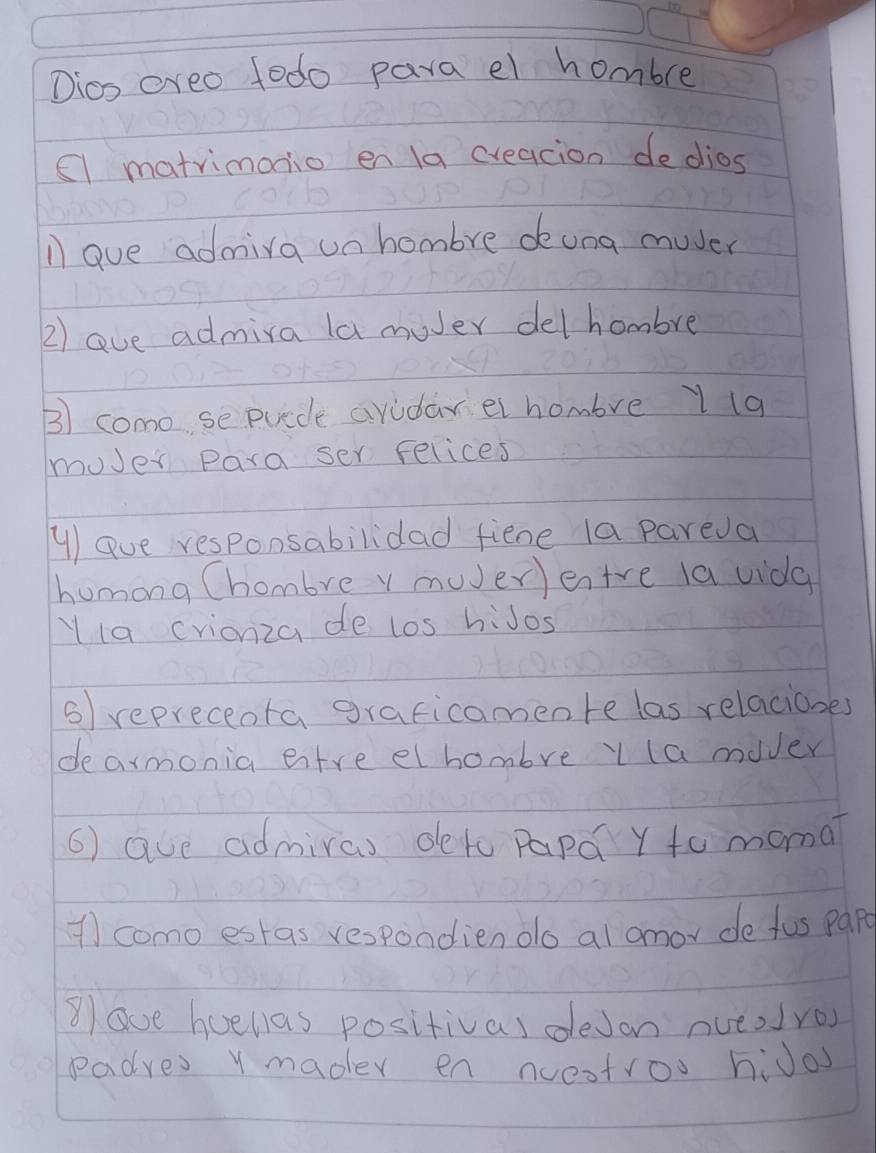 Dios creo todo para el hombre
El matrimonio en la creacion de dios
1) Que admira un hombre de una mujer
2) Que admira la mujer del hombre
3) como se puede ayudar el hombre y la
mujer para ser felices
4) Que responsabilidad tiene la pareja
humana (hombre y mujer) entre la vida
y la crianza de los hijos
5) reprecenta graficamente las relaciones
de armonia entre el hombre y la mujer
6) Que admiras de tu Papá y tu mamá
7) como estas respondiendo al amor de tus papa
8) Que huellas positivas dejan nuestros
padres y mader en nuestros hijos